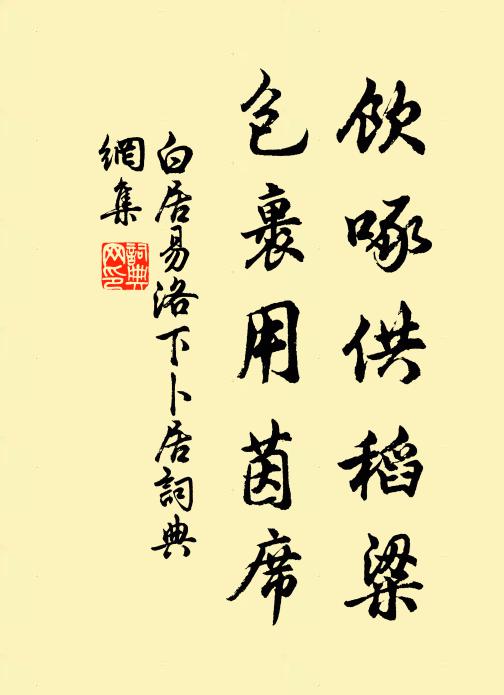 飲啄供稻粱
包裹用茵席
白居易洛下卜居詞典
網集
詞典网印